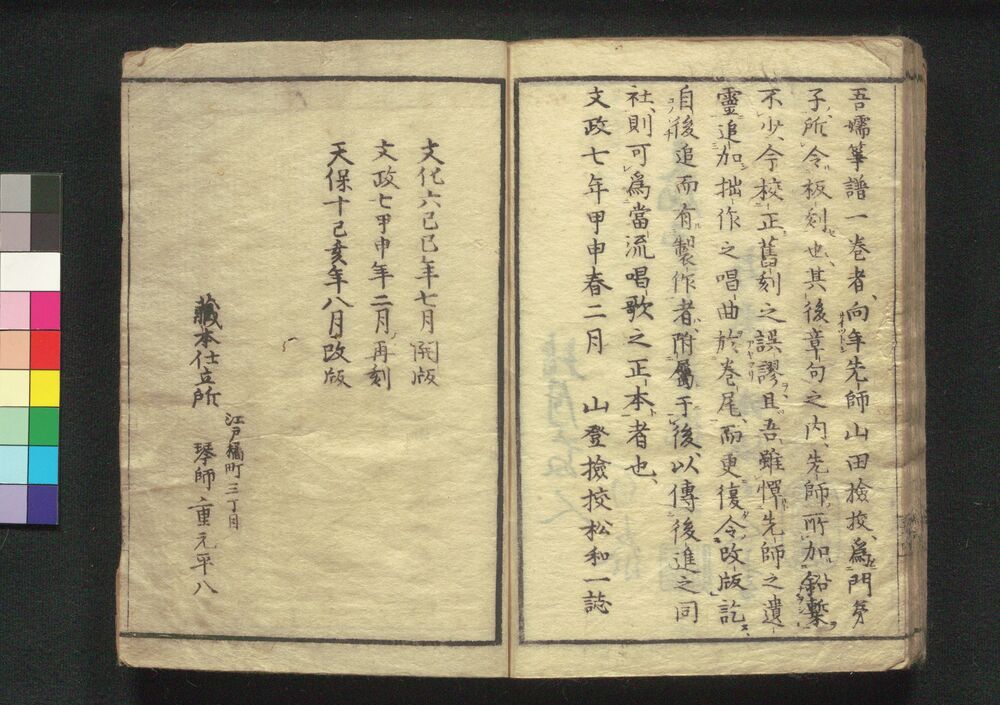 吾嬬箏譜一巻者、向年先師山田撿挍、為門弟
子、所令板刻也、其後章句之内、先師所加鉛槧
不少、今校正舊刻之誤謬、且吾雖憚先師之遺
靈、追加拙作之唱曲於巻尾、而更復令改版訖、
自後追而有製作者、附属于後、以傳後進之同
社、則可為當流唱歌之正本者也、
文政七年甲申春二月　山登撿挍松和一誌
文化六己巳年七月　開版
文政七甲申年二月　再刻
天保十己亥年八月　改版
藏本仕立所
江戸橘町三丁目
琴師　重元平八